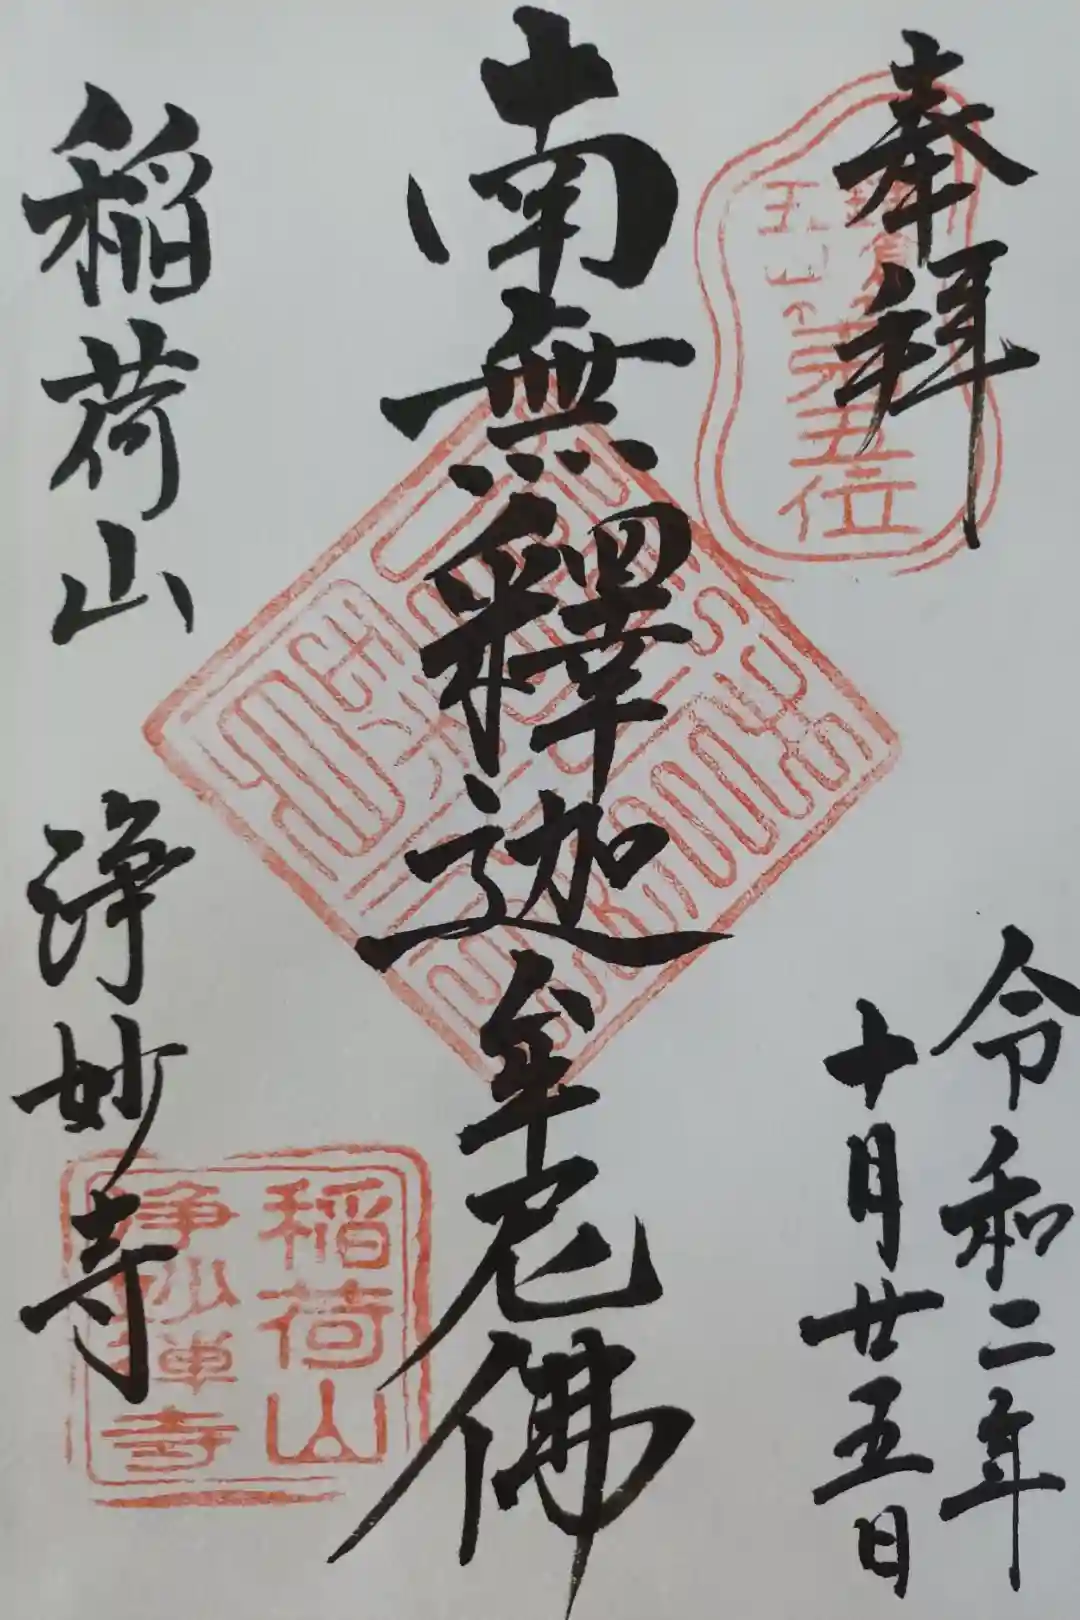 奉拝
鎌倉
五山
第五位
令和二年
十月廿五日
南無釋迦牟尼佛
稲荷山 浄妙寺
稲荷山
浄妙禅寺